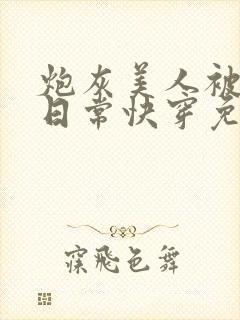 炮灰美人被
日常快穿免
寐飛色舞